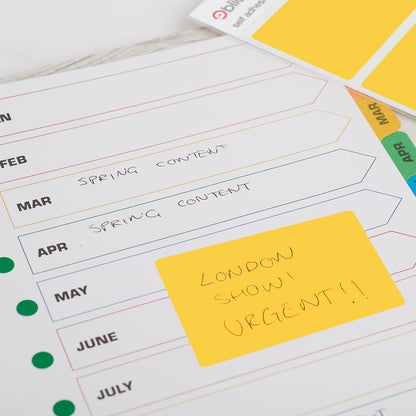 self adhes
FEB
MAR SPRING CONTENT
APR SPRING CONTENT
MAY
JUNE
JULY
LONDON
SHOW!
URGENT!!
MAR
APR